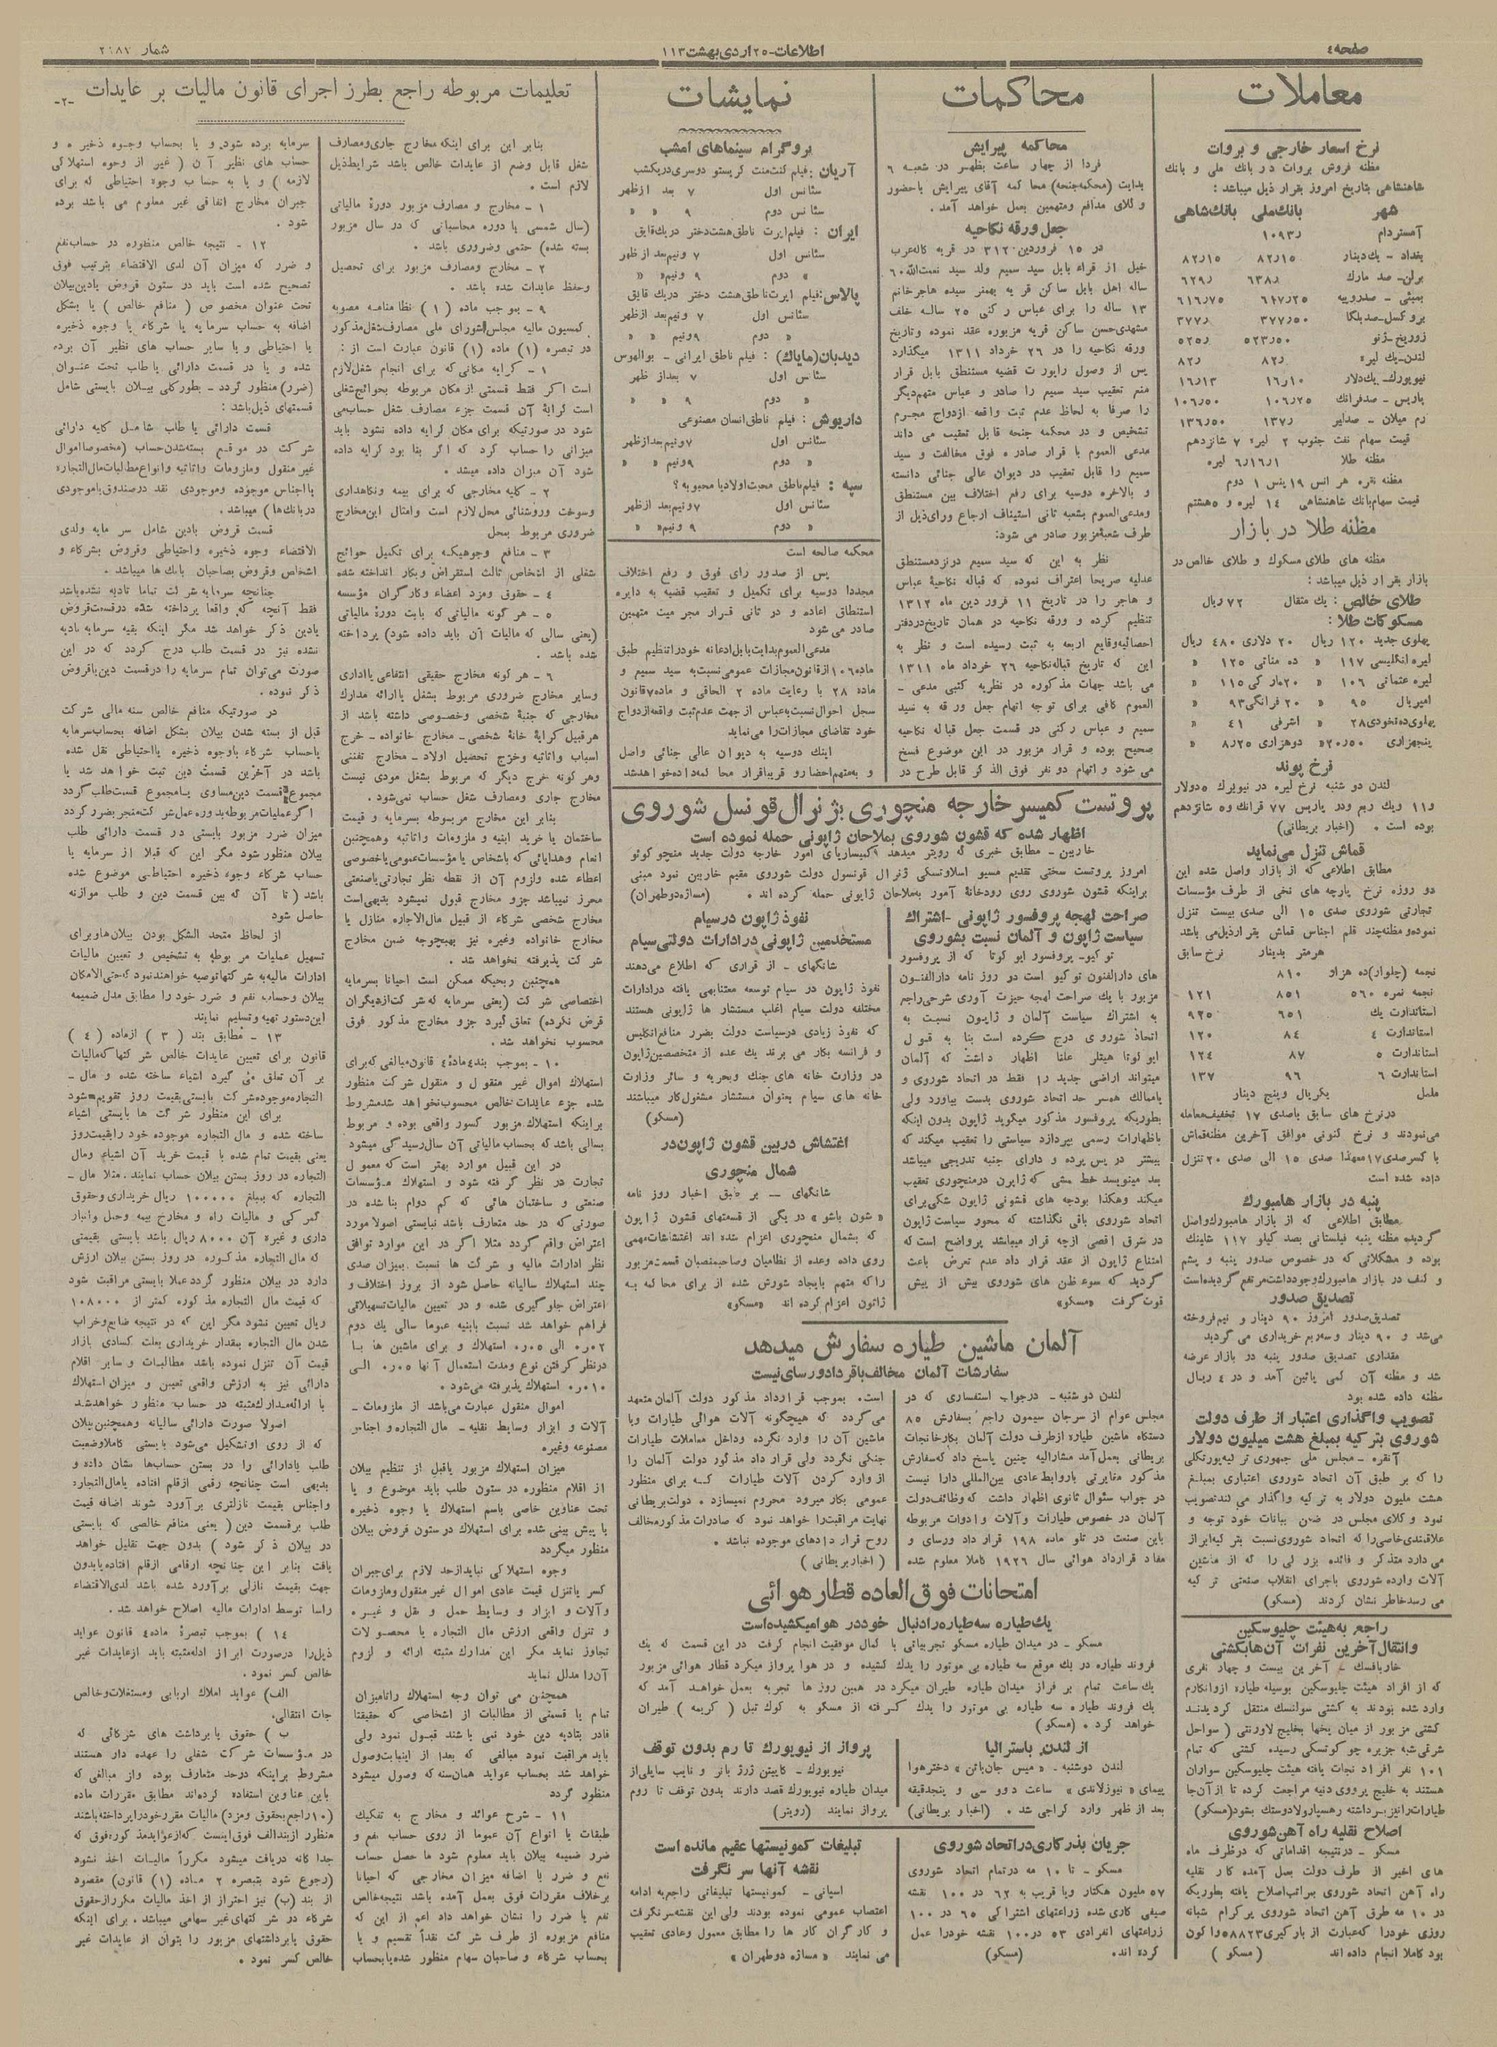 صفحه ٤
اطلاعات - ۲۵ اردی بهشت ۱۱۳
شمار
معاملات
نرخ اسعار خارجی و بروات
مظنه فروش بروات در بانك ملی و بانك
شاهنشاهی بتاریخ امروز بقرار ذیل میباشد :
شهر بانك‌ملی بانك‌شاهی
آمستردام ۱۰۹۳ر
بغداد - یك‌دینار ۸۲ر۱۵ ۸۲ر۱۵
برلن - صد مارك ۶۳۸ر ۶۲۹ر
لندن - یك لیره ۸۲ر ۸۲ر
نیویورك - یك‌دلار ۱۶ر۱۰ ۱۶ر۱۳
پاریس - صدفرانك ۱۰۶ر۲۵ ۱۰۶ر۵۰
رم میلان - صدلیر ۱۳۷ر ۱۳۶ر۵۰
قیمت سهام نفت جنوب ۲ لیره ۷ شانزدهم
مظنه طلا ۶ر۱۶ر۱ لیره
مظنه نقره هر انس ۱۹ پنس ۱ دوم
مظنه طلا در بازار
مظنه های طلای مسکوك و طلای خالص در
بازار بقرار ذیل میباشد :
طلای خالص : یك مثقال ۷۲ ریال
مسکوکات طلا :
پهلوی جدید ۱۲۰ ریال ۲۰ دلاری ۴۸۰ ریال
لیره انگلیسی ۱۱۷ « ده مناتی ۱۲۵ «
لیره عثمانی ۱۰۶ « ۲۰مارکی ۱۱۵ «
امپریال ۹۵ « ۲۰ فرانکی ۹۳ «
نرخ پوند
لندن دو شنبه نرخ لیره در نیویرك ۵دولار
و۱۱ ویك ربم ودر پاریس ۷۷ فرانك وه شانزدهم
بوده است . (اخبار بریطانی)
قماش تنزل می‌نماید
مطابق اطلاعی که از بازار واصل شده این
دو روزه نرخ پارچه های نخی از طرف مؤسسات
تجارتی شوروی صدی ۱۵ الی صدی بیست تنزل
نموده ومظنه‌چند قلم اجناس قماش بقرارذیل‌می باشد
هرمتر بدینار نرخ سابق
نجمه (چلوار)ده هزاو ۸۱۰
نجمه نمره ۵۶۰ ۸۵۱ ۱۲۱
استاندارت یك ۶۵۱ ۹۲۵
استاندارت ٤ ۸٤ ۱۲۰
استاندارت ۵ ۸۷ ۱۲٤
استاندارت ۶ ۹۶ ۱۳۷
ململ یکریال وپنج دینار
درنرخ های سابق باصدی ۱۷ تخفیف‌معامله
می‌نمودند و نرخ کنونی موافق آخرین مظنه‌قماش
با کسرصدی۱۷معهذا صدی ۱۵ الی صدی ۲۰تنزل
داده شده است
پنبه در بازار هامبورك
مطابق اطلاعی که از بازار هامبورك‌واصل
گردیده مظنه پنبه فیلستانی بصد کیلو ۱۱۷ شلینك
بوده و مشکلاتی که در خصوص صدور پنبه و پشم
و کنف در بازار هامبورك‌وجودداشت‌مرتفم‌گردیده‌است
تصدیق صدور
تصدیق‌صدور امروز ۹۰ دینار و نیم‌فروخته
می‌شد و ۹۰ دینار وسه‌ربم خریداری می گردید
مقداری تصدیق صدور پنبه در بازار عرضه
شد و مظنه آن کمی پائین آمد و در ٤ ریال
مظنه داده شده بود
تصویب واگذاری اعتبار از طرف دولت
شوروی بترکیه بمبلغ هشت میلیون دولار
آنقره - مجلس ملی جمهوری ترکیه‌پورتکلی
را که بر طبق آن اتحاد شوروی اعتباری بمبلغ
هشت ملیون دولار به ترکیه واگذار می کندتصویب
نمود و کلای مجلس در ضمن بیانات خود توجه و
علاقمندی‌خاصی‌را که اتحاد شوروی‌نسبت بترکیه‌ابراز
می دارد متذکر و فائده بزرگی را که از ماشین
آلات وارده شوروی باجرای انقلاب صنعتی ترکیه
می رسدخاطر نشان کردند (مسکو)
راجع به‌هیئت چلیوسکین
وانتقال‌آخرین نفرات آن‌هابکشتی
خاربافسك - آخرین بیست و چهار نفری
که از افراد هیئت چلیوسکین بوسیله طیاره ازوانکارم
وارد شده بودند به کشتی سولنسك منتقل گردیدند
کشتی مزبور از میان یخها بخلیج لاورنتی (سواحل
شرقی‌شبه جزیره چوکوتسکی رسیده کشتی که تمام
۱۰۱ نفر افراد نجات یافته هیئت چلیوسکین سواران
هستند به خلیج پرووی دنیه مراجعت کرده تا ازآن‌جا
طیارات‌رانیزبرداشته رهسپارولادوستك بشود(مسکو)
اصلاح نقلیه راه آهن‌شوروی
مسکو - درنتیجه اقداماتی که درظرف ماه
های اخیر از طرف دولت بعمل آمده کار نقلیه
راه آهن اتحاد شوروی بمراتب‌اصلاح یافته بطوریکه
در ۱۰ مه طرق آهن اتحاد شوروی پرگرام شبانه
روزی خودرا که‌عبارت از بارگیری۵۸۸۲۳واگون
بود کاملا انجام داده اند (مسکو)
محاکمات
محاکمه پیرایش
فردا از چهار ساعت بظهر در شعبه ۶
بدایت (محکمه‌جنحه) محاکمه آقای پیرایش باحضور
وکلای مدافع ومتهمین بعمل خواهد آمد.
جعل ورقه نکاحیه
ساله اهل بابل ساکن قریه بهمنر سیده هاجرخانم
۱۳ ساله را برای عباس رکنی ۲۵ ساله خلف
مشهدی‌حسن ساکن قریه مزبوره عقد نموده وتاریخ
ورقه نکاحیه را در ۲۶ خرداد ۱۳۱۱ میگذارد
پس از وصول راپورت قضیه مستنطق بابل قرار
منع تعقیب سید سمیم را صادر و عباس متهم‌دیگر
را صرفا به لحاظ عدم ثبت واقعه ازدواج مجرم
تشخیص و در محکمه جنحه قابل تعقیب می داند
مدعی العموم با قرار صادره فوق مخالفت و سید
سمیم را قابل تعقیب در دیوان عالی جنائی دانسته
و بالاخره دوسیه برای رفع اختلاف بین مستنطق
ومدعی‌العموم بشعبه ثانی استیناف ارجاع ورای‌ذیل از
طرف شعبهٔ‌مزبور صادر می شود:
نظر به این که سید سمیم درنزدمستنطق
عدلیه صریحا اعتراف نموده که قباله نکاحیهٔ عباس
و هاجر را در تاریخ ۱۱ فروردین ماه ۱۳۱۲
تنظیم کرده و ورقه نکاحیه در همان تاریخ‌دردفتر
احصائیه‌وقایع اربعه به ثبت رسیده است و نظر به
این که تاریخ قباله‌نکاحیه ۲۶ خرداد ماه ۱۳۱۱
می باشد جهات مذکوره در نظریه کتبی مدعی -
العموم کافی برای توجه اتهام جعل ورقه به سید
سمیم و عباس رکنی در قسمت جعل قباله نکاحیه
صحیح بوده و قرار مزبور در این موضوع فسخ
می شود و اتهام دو نفر فوق الذکر قابل طرح در
نمایشات
پروگرام سینماهای امشب
آریان : فیلم کنت‌منت کریستو دوسری‌دریکشب
سئانس اول ۷ بعد ازظهر
سئانس دوم ۹ « «
ایران : فیلم‌ایرت ناطق‌هشت‌دختر دریك‌قایق
سئانس اول ۷ ونیم‌بعد از ظهر
« دوم ۹ ونیم« «
پالاس : فیلم ایرت‌ناطق‌هشت دختر دریك قایق
سئانس اول ۷ ونیم‌بعد ازظهر
« دوم ۹ ونیم « «
دیدبان(مایاك) : فیلم ناطق ایرانی - بوالهوس
سئانس اول ۷ بعداز ظهر
« دوم ۹ « «
داریوش : فیلم ناطق‌انسان مصنوعی
سئانس اول ۷ونیم‌بعدازظهر
« دوم ۹ونیم « «
سپه : فیلم‌ناطق محبت‌اولادیا محبوبه ؟
سئانس اول ۷ونیم‌بعد ازظهر
« دوم ۹ ونیم« «
محکمه صالحه است
پس از صدور رای فوق و رفع اختلاف
مجددا دوسیه برای تکمیل و تعقیب قضیه به دایره
استنطاق اعاده و در ثانی قرار مجرمیت متهمین
صادر می شود
مدعی‌العموم بدایت‌بابل‌ادعانه خودراتنظیم طبق
ماده۱۰۶ازقانون‌مجازات عمومی‌نسبت‌به سید سمیم و
ماده ۲۸ با رعایت ماده ۲ الحاقی و ماده۷قانون
سجل احوال‌نسبت‌به‌عباس از جهت عدم‌ثبت واقعه‌ازدواج
خود تقاضای مجازات‌را می‌نماید
اینك دوسیه به دیوان عالی جنائی واصل
و به‌متهم‌احضارو قریباقرار محاکمه‌داده‌خواهدشد
پروتست کمیسرخارجه منچوری بژنرال‌قونسل شوروی
اظهار شده که قشون شوروی بملاحان ژاپونی حمله نموده است
خاربین - مطابق خبری که رویتر میدهد کمیساریای امور خارجه دولت جدید منچوکوئو
امروز پروتست سختی تقدیم مسیو اسلاوتسکی ژنرال قونسول دولت شوروی مقیم خاربین نمود مبنی
براینکه قشون شوروی روی رودخانهٔ آمور به‌ملاحان ژاپونی حمله کرده اند . (مساژه‌دوطهران)
صراحت لهجه پروفسور ژاپونی - اشتراك
سیاست ژاپون و آلمان نسبت بشوروی
توکیو - پروفسور ایوکوتا که از پروفسور
های دارالفنون توکیو است دو روز نامه دارالفنون
مزبور با یك صراحت لهجه حیرت آوری شرحی‌راجم
به اشتراك سیاست آلمان و ژاپون نسبت به
اتحاد شوروی درج کرده است بنا به قبول
ایوکوتا هیتلر علنا اظهار داشت که آلمان
میتواند اراضی جدید را فقط در اتحاد شوروی و
یاممالك همسر حد اتحاد شوروی بدست بیاورد ولی
بطوریکه پروفسور مذکور میگوید ژاپون بدون اینکه
باظهارات رسمی بپردازد سیاستی را تعقیب میکند که
بیشتر در پس‌پرده و دارای جنبه تدریجی میباشد
بعد مینویسد خط مشی که ژاپون درمنچوری تعقیب
میکند وهکذا بودجه های قشونی ژاپون شکی‌برای
اتحاد شوروی باقی نگذاشته که محور سیاست ژاپون
در شرق اقصی ازچه قرار میباشد پرواضح است‌که
امتناع ژاپون از عقد قرار داد عدم تعرض باعث
گردید که سوءظن های شوروی بیش از پیش
قوت‌گرفت «مسکو»
نفوذ ژاپون درسیام
مستخدمین ژاپونی درادارات دولتی‌سیام
شانگهای - از قراری که اطلاع می‌دهند
نفوذ ژاپون در سیام توسعه معتنابهی یافته درادارات
مختلفه دولت سیام اغلب مستشار ها ژاپونی هستند
که نفوذ زیادی درسیاست دولت بضرر منافع‌انگلیس
و فرانسه بکار می برند یك عده از متخصصین‌ژاپون
در وزارت خانه های جنك وبحریه و سائر وزارت
خانه های سیام بعنوان مستشار مشغول‌کار میباشند
(مسکو)
اغتشاش دربین قشون ژاپون‌در
شمال منچوری
شانگهای - بر طبق اخبار روز نامه
«شون باشو» در یکی از قسمتهای قشون ژاپون
که بشمال منچوری اعزام شده اند اغتشاشات‌مهمی
روی داده وعده از نظامیان وصاحبمنصبان قسمت‌مزبور
راکه متهم بایجاد شورش شده از برای محاکمه به
ژاپون اعزام کرده اند «مسکو»
آلمان ماشین طیاره سفارش میدهد
سفارشات آلمان مخالف‌باقرداد‌ورسای‌نیست
لندن دوشنبه - درجواب استفساری که در
مجلس عوام از سرجان سیمون راجم بسفارش ۸۵
دستگاه ماشین طیاره ازطرف دولت آلمان بکارخانجات
بریطانی بعمل‌آمد مشارالیه چنین پاسخ داد که‌سفارش
مذکور مغایرتی باروابط‌عادی بین‌المللی دارا نیست
در جواب سئوال ثانوی اظهار داشت که‌وظائف‌دولت
آلمان در خصوص طیارات وآلات و ادوات مربوطه
باین صنعت در تلو ماده ۱۹۸ قرار داد ورسای و
مفاد قرارداد هوائی سال ۱۹۲۶ کاملا معلوم شده
است. بموجب قرارداد مذکور دولت آلمان‌متعهد
می گردد که هیچگونه آلات هوائی طیارات ویا
ماشین آن را وارد نگرده وداخل معاملات طیارات
جنگی نگردد ولی قرار داد مذکور دولت آلمان را
ازوارد کردن آلات طیارات که برای منظور
عمومی بکار میرود محروم نمیسازد . دولت‌بریطانی
نهایت مراقبت‌را خواهد نمود که صادرات مذکوره‌مخالف
روح قراردادهای موجوده نباشد .
(اخباربریطانی)
امتحانات فوق‌العاده قطار هوائی
یك‌طیاره سه‌طیاره‌رادنبال خوددر هوامیکشیده‌است
مسکو - در میدان طیاره مسکو تجربیاتی با کمال موفقیت انجام گرفت در این قسمت که یك
فروند طیاره در یك موقم سه طیاره بی موتور را یدك کشیده و در هوا پرواز میکرد قطار هوائی مزبور
یك‌ساعت تمام بر فراز میدان طیاره طیران میکرد در همین روز ها تجربه بعمل خواهد آمد که
یك فروند طیاره سه طیاره بی موتور را یدك گرفته از مسکو به کوك تبل (کریمه) طیران
خواهد کرد . (مسکو)
از لندن باسترالیا
لندن دوشنبه - «میس جان‌باتن» دخترهوا
پیمای «نیوزلاندی» ساعت دووسی وپنجدقیقه
بعد از ظهر وارد کراچی شد . (اخبار بریطانی)
پرواز از نیویورك تا رم بدون توقف
نیویورك - کاپیتن ژرژ پانر و نایب سابلی‌از
میدان طیاره نیویورك قصد دارند بدون توقف تا روم
پرواز نمایند (رویتر)
جریان بذرکاری‌دراتحاد شوروی
مسکو - تا ۱۰ مه درتمام اتحاد شوروی
۵۷ ملیون هکتار ویا قریب به ۶۲ در ۱۰۰ نقشه
صیفی کاری شده زراعتهای اشتراکی ۶۵ در ۱۰۰
زراعتهای انفرادی ۵۳ در۱۰۰ نقشه خودرا عمل
کرده اند. (مسکو)
تبلیغات کمونیستها عقیم مانده است
نقشه آنها سر نگرفت
اسپانی - کمونیستها تبلیغاتی راجم‌به ادامه
اعتصاب عمومی نموده بودند ولی‌این نقشه‌سرنگرفت
و کارگران کار ها را مطابق معمول وعادی تعقیب
می نمایند «مساژه دوطهران»
تعلیمات مربوطه راجع بطرز اجرای قانون مالیات بر عایدات
-۲-
بنابر این برای اینکه مخارج جاری‌ومصارف
شغل قابل وضم از عایدات خالص باشد شرایط‌ذیل
لازم است .
۱ - مخارج و مصارف مزبور دورهٔ مالیاتی
(سال شمسی یا دوره محاسباتی که در سال مزبور
بسته شده) حتمی وضروری باشد .
۲ - مخارج ومصارف مزبور برای تحصیل
وحفظ عایدات شده باشد .
۹ - بموجب ماده (۱) نظامنامه مصوبه
کمسیون مالیه مجلس‌شورای ملی مصارف‌شغل‌مذکور
در تبصره (۱) ماده (۱) قانون عبارت است از :
۱ - کرایه مکانی‌که برای انجام شغل‌لازم
است اگر فقط قسمتی از مکان مربوطه بحوائج‌شغلی
است کرایهٔ آن قسمت جزء مصارف شغل حساب‌می
شود در صورتیکه برای مکان کرایه داده نشود باید
میزانی را حساب کرد که اگر بنا بود کرایه داده
شود آن میزان داده میشد .
۲ - کلیه مخارجی که برای بیمه ونگاهداری
وسوخت وروشنائی محل‌لازم است وامثال این‌مخارج
ضروری مربوط بمحل
۳ - منافع وجوهیکه برای تکمیل حوائج
شغلی از اشخاص ثالث استقراض وبکار انداخته شده
٤ - حقوق ومزد اعضاء وکارگران مؤسسه
۵ - هر گونه مالیاتی که بابت دورهٔ مالیاتی
(یعنی سالی که مالیات آن باید داده شود) پرداخته
شده باشد .
۶ - هر گونه مخارج حقیقی انتفاعی یااداری
وسایر مخارج ضروری مربوط بشغل باارائه مدارك
مخارجی که جنبهٔ شخصی وخصوصی داشته باشد از
هرقبیل کرایهٔ خانهٔ شخصی - مخارج خانواده - خرج
اسباب واثاثیه وخرج تحصیل اولاد - مخارج تفننی
وهر گونه خرج دیگر که مربوط بشغل مودی نیست
مخارج جاری ومصارف شغل حساب نمی‌شود .
بنابر این مخارج مربوطه بسرمایه و قیمت
ساختمان یا خرید ابنیه و ملزومات واثاثیه وهمچنین
انعام وهدایائی‌که باشخاص یامؤسسات‌عمومی‌یاخصوصی
اعطاء شده ولزوم آن از نقطه نظر تجارتی‌یاصنعتی
محرز نمیباشد جزو مخارج قبول نمیشود بدیهی‌است
مخارج شخصی شرکاء از قبیل مال‌الاجاره منازل یا
مخارج خانواده وغیره نیز بهیچوجه ضمن مخارج
شرکت پذیرفته نخواهد شد .
همچنین ربحیکه ممکن است احیانا بسرمایه
اختصاصی شرکت (یعنی سرمایه که شرکت ازدیگران
قرض نکرده) تعلق‌گیرد جزو مخارج مذکور فوق
محسوب نخواهد شد .
۱۰ - بموجب بند٤مادهٔ٤ قانون‌مبالغی که‌برای
استهلاك اموال غیر منقول و منقول شرکت منظور
شده جزء عایدات خالص محسوب‌نخواهد شدمشروط
براینکه استهلاك مزبور کسور واقعی بوده و مربوط
بسالی باشد که بحساب مالیاتی آن سال‌رسیدگی میشود
در این قبیل موارد بهتر است‌که معمول
تجارت در نظر گرفته شود و استهلاك مؤسسات
صنعتی و ساختمان هائی که کم دوام بنا شده در
صورتی‌که در حد متعارف باشد نبایستی اصولا مورد
اعتراض واقم گردد مثلا اگر در این موارد توافق
نظر ادارات مالیه و شرکت ها نسبت بمیزان صدی
چند استهلاك سالیانه حاصل شود از بروز اختلاف و
اعتراض جلوگیری شده و در تعیین مالیات‌تسهیلاتی
فراهم خواهد شد نسبت بابنیه عموما سالی یك دوم
درنظر گرفتن نوع ومدت استعمال آنها ۰۵ر۰ الی
۰۱۰ر استهلاك پذیرفته می‌شود .
اموال منقول عبارت می‌باشد از ملزومات -
آلات و ابزار وسایط نقلیه - مال التجاره و اجناس
مصنوعه وغیره
میزان استهلاك مزبور یاقبل از تنظیم بیلان
از اقلام منظوره در ستون طلب باید موضوع و یا
تحت عناوین خاصی باسم استهلاك یا وجوه ذخیره
یا پیش بینی شده برای استهلاك در ستون قروض بیلان
منظور میگردد
وجوه استهلاکی نبایدازحد لازم برای‌جبران
کسر یاتنزل قیمت عادی اموال غیرمنقول‌وملزومات
وآلات و ابزار و وسایط حمل و نقل و غیره
و تنزل واقعی ارزش مال التجاره یا محصولات
تجاوز نماید مگر این مدارك مثبته ارائه و لزوم
آن‌را مدلل نماید
همچنین می توان وجه استهلاك راتامیزان
تمام یا قسمتی از مطالبات از اشخاصی که حقیقتا
قادر بتادیه دین خود نمی باشند قبول نمود ولی
باید مراقبت نمود مبالغی که بعدا از اینبابت‌وصول
خواهد شد بحساب عواید همان‌سنه‌که وصول میشود
منظور گردد
۱۱ - شرح عوائد و مخارج به تفکیك
طبقات یا انواع آن عموما از روی حساب نفع و
ضرر ضمیمه بیلان باید معلوم شود ما حصل حساب
نفع و ضرر با اضافه میزان مخارجی که احیانا
برخلاف مقررات فوق بعمل آمده باشد نتیجه‌خالص
نفع یا ضرر را نشان خواهد داد اعم از این که
منافع مزبوره از طرف شرکت نقداً تقسیم و یا
بحساب شرکاء و صاحبان سهام منظور شده‌یابحساب
سرمایه برده شود. و یا بحساب وجوه ذخیره و
حساب های نظیر آن (غیر از وجوه استهلاکی
لازمه) و یا به حساب وجوه احتیاطی که برای
جبران مخارج اتفاقی غیر معلوم می باشد برده
شود .
۱۲ - نتیجه خالص منظوره در حساب‌نفع
و ضرر که میزان آن لدی الاقتضاء بترتیب فوق
تصحیح شده است باید در ستون قروض یادین‌بیلان
تحت عنوان مخصوص (منافع خالص) یا بشکل
اضافه به حساب سرمایه یا شرکاء یا وجوه ذخیره
یا احتیاطی و یا سایر حساب های نظیر آن برده
شده و یا در قسمت دارائی یا طلب تحت عنوان
(ضرر) منظور گردد - بطورکلی بیلان بایستی شامل
قسمتهای ذیل‌باشد :
قسمت دارائی یا طلب شامل کلیه دارائی
شرکت در موقع بسته‌شدن‌حساب (مخصوصااموال
غیرمنقول وملزومات واثاثیه وانواع‌مطلبات‌مال‌التجاره
یااجناس موجوده وموجودی نقد درصندوق‌یاموجودی
دربانك‌ها) میباشد .
قسمت قروض یادین شامل سرمایه ولدی
الاقتضاء وجوه ذخیره واحتیاطی وقروض بشرکاء و
اشخاص وقروض بصاحبان بانك ها میباشد .
چنانچه سرمایه شرکت تماما تادیه نشده‌باشد
فقط آنچه که واقعا پرداخته شده درقسمت‌قروض
یادین ذکر خواهد شد مگر اینکه بقیه سرمایه‌تادیه
نشده نیز در قسمت طلب درج گردد که در این
صورت می‌توان تمام سرمایه را درقسمت دین‌یاقروض
ذکر نموده .
در صورتیکه منافع خالص سنه مالی شرکت
قبل از بسته شدن بیلان بشکل اضافه بحساب‌سرمایه
یاحساب شرکاء یاوجوه ذخیره یااحتیاطی نقل شده
باشد در آخرین قسمت دین ثبت خواهد شد یا
مجموع قسمت دین‌مساوی بامجموع قسمت‌طلب‌گردد
اگرعملیات‌مربوطه‌بدوره‌عمل‌شرکت‌منجربضررگردد
میزان ضرر مزبور بایستی در قسمت دارائی طلب
بیلان منظور شود مگر این که قبلا از سرمایه یا
حساب شرکاء وجوه ذخیره احتیاطی موضوع شده
باشد (تا آن که بین قسمت دین و طلب موازنه
حاصل شود
از لحاظ متحد الشکل بودن بیلان‌هاوبرای
تسهیل عملیات مربوطه به تشخیص و تعیین مالیات
ادارات مالیه‌به شرکتهاتوصیه خواهندنمودکه‌حتی‌الامکان
بیلان وحساب نفع و ضرر خود را مطابق مدل ضمیمه
این‌دستور تهیه وتسلیم نمایند
۱۳ - مطابق بند (۳) ازماده (٤)
قانون برای تعیین عایدات خالص شرکتهاکه‌مالیات
بر آن تعلق می گیرد اشیاء ساخته شده و مال -
التجاره‌موجوده‌شرکت بایستی‌بقیمت روز تقویم‌شود
برای این منظور شرکت ها بایستی اشیاء
ساخته شده و مال التجاره موجوده خود رابقیمت‌روز
یعنی بقیمت تمام شده یا قیمت خرید آن اشیاء ومال
التجاره در روز بستن بیلان حساب نمایند . مثلا مال -
التجاره که بمبلغ ۱۰۰۰۰۰ ریال خریداری وحقوق
گمرکی و مالیات راه و مخارج بیمه وحمل وانبار
داری و غیره آن ۸۰۰۰ ریال باشد بایستی بقیمتی
که مال التجاره مذکوره در روز بستن بیلان ارزش
دارد در بیلان منظور گردد عملا بایستی مراقبت شود
که قیمت مال التجاره مذکوره کمتر از ۱۰۸۰۰۰
ریال تعیین نشود مگر این که در نتیجه ضایع‌وخراب
شدن مال التجاره بمقدار خریداری بعلت کسادی بازار
قیمت آن تنزل نموده باشد مطالبات و سایر اقلام
دارائی نیز به ارزش واقعی تعیین و میزان استهلاك
با ارائه‌مدارك‌مثبته در حساب منظور خواهدشد
اصولا صورت دارائی سالیانه وهمچنین‌بیلان
که از روی اوتشکیل می‌شود بایستی کاملاوضعیت
طلب یادارائی را در بستن حسابها نشان داده و
بدیهی است چنانچه رقمی ازقلم افتاده یامال‌التجاره
واجناس بقیمت نازلتری برآورد شوند اضافه قیمت
طلب برقسمت دین (یعنی منافع خالصی که بایستی
در بیلان ذکر شود) بدون جهت تقلیل خواهد
یافت بنابر این چنانچه ارقامی ازقلم افتاده‌یابدون
جهت بقیمت نازلی برآورد شده باشد لدی‌الاقتضاء
راسا توسط ادارات مالیه اصلاح خواهد شد .
۱٤) بموجب تبصرهٔ ماده٤ قانون عواید
ذیل‌را درصورت ابراز ادله‌مثبته باید ازعایدات غیر
خالص کسر نمود .
الف) عواید املاك اربابی ومستغلات‌وخالص
جات انتقالی.
ب) حقوق یابرداشت های شرکائی که
در مؤسسات شرکت شغلی را عهده دار هستند
مشروط براینکه درحد متعارف بوده واز مبالغی که
باین عناوین استفاده کرده‌اند مطابق مقررات ماده
(۱۰راجم‌بحقوق ومزد) مالیات مقررخودراپرداخته‌باشند
منظور ازبندالف فوق‌اینست که‌ازعوایدمذکورفوق‌که
جداگانه دریافت میشود مکرراً مالیات اخذ نشود
(رجوع شود بتبصره ۲ ماده (۱) قانون) مقصود
از بند (ب) نیز احتراز از اخذ مالیات مکررازحقوق
شرکاء در شرکتهای‌غیر سهامی میباشد . برای اینکه
حقوق یابرداشتهای مزبور را بتوان از عایدات غیر
خالص کسر نمود .